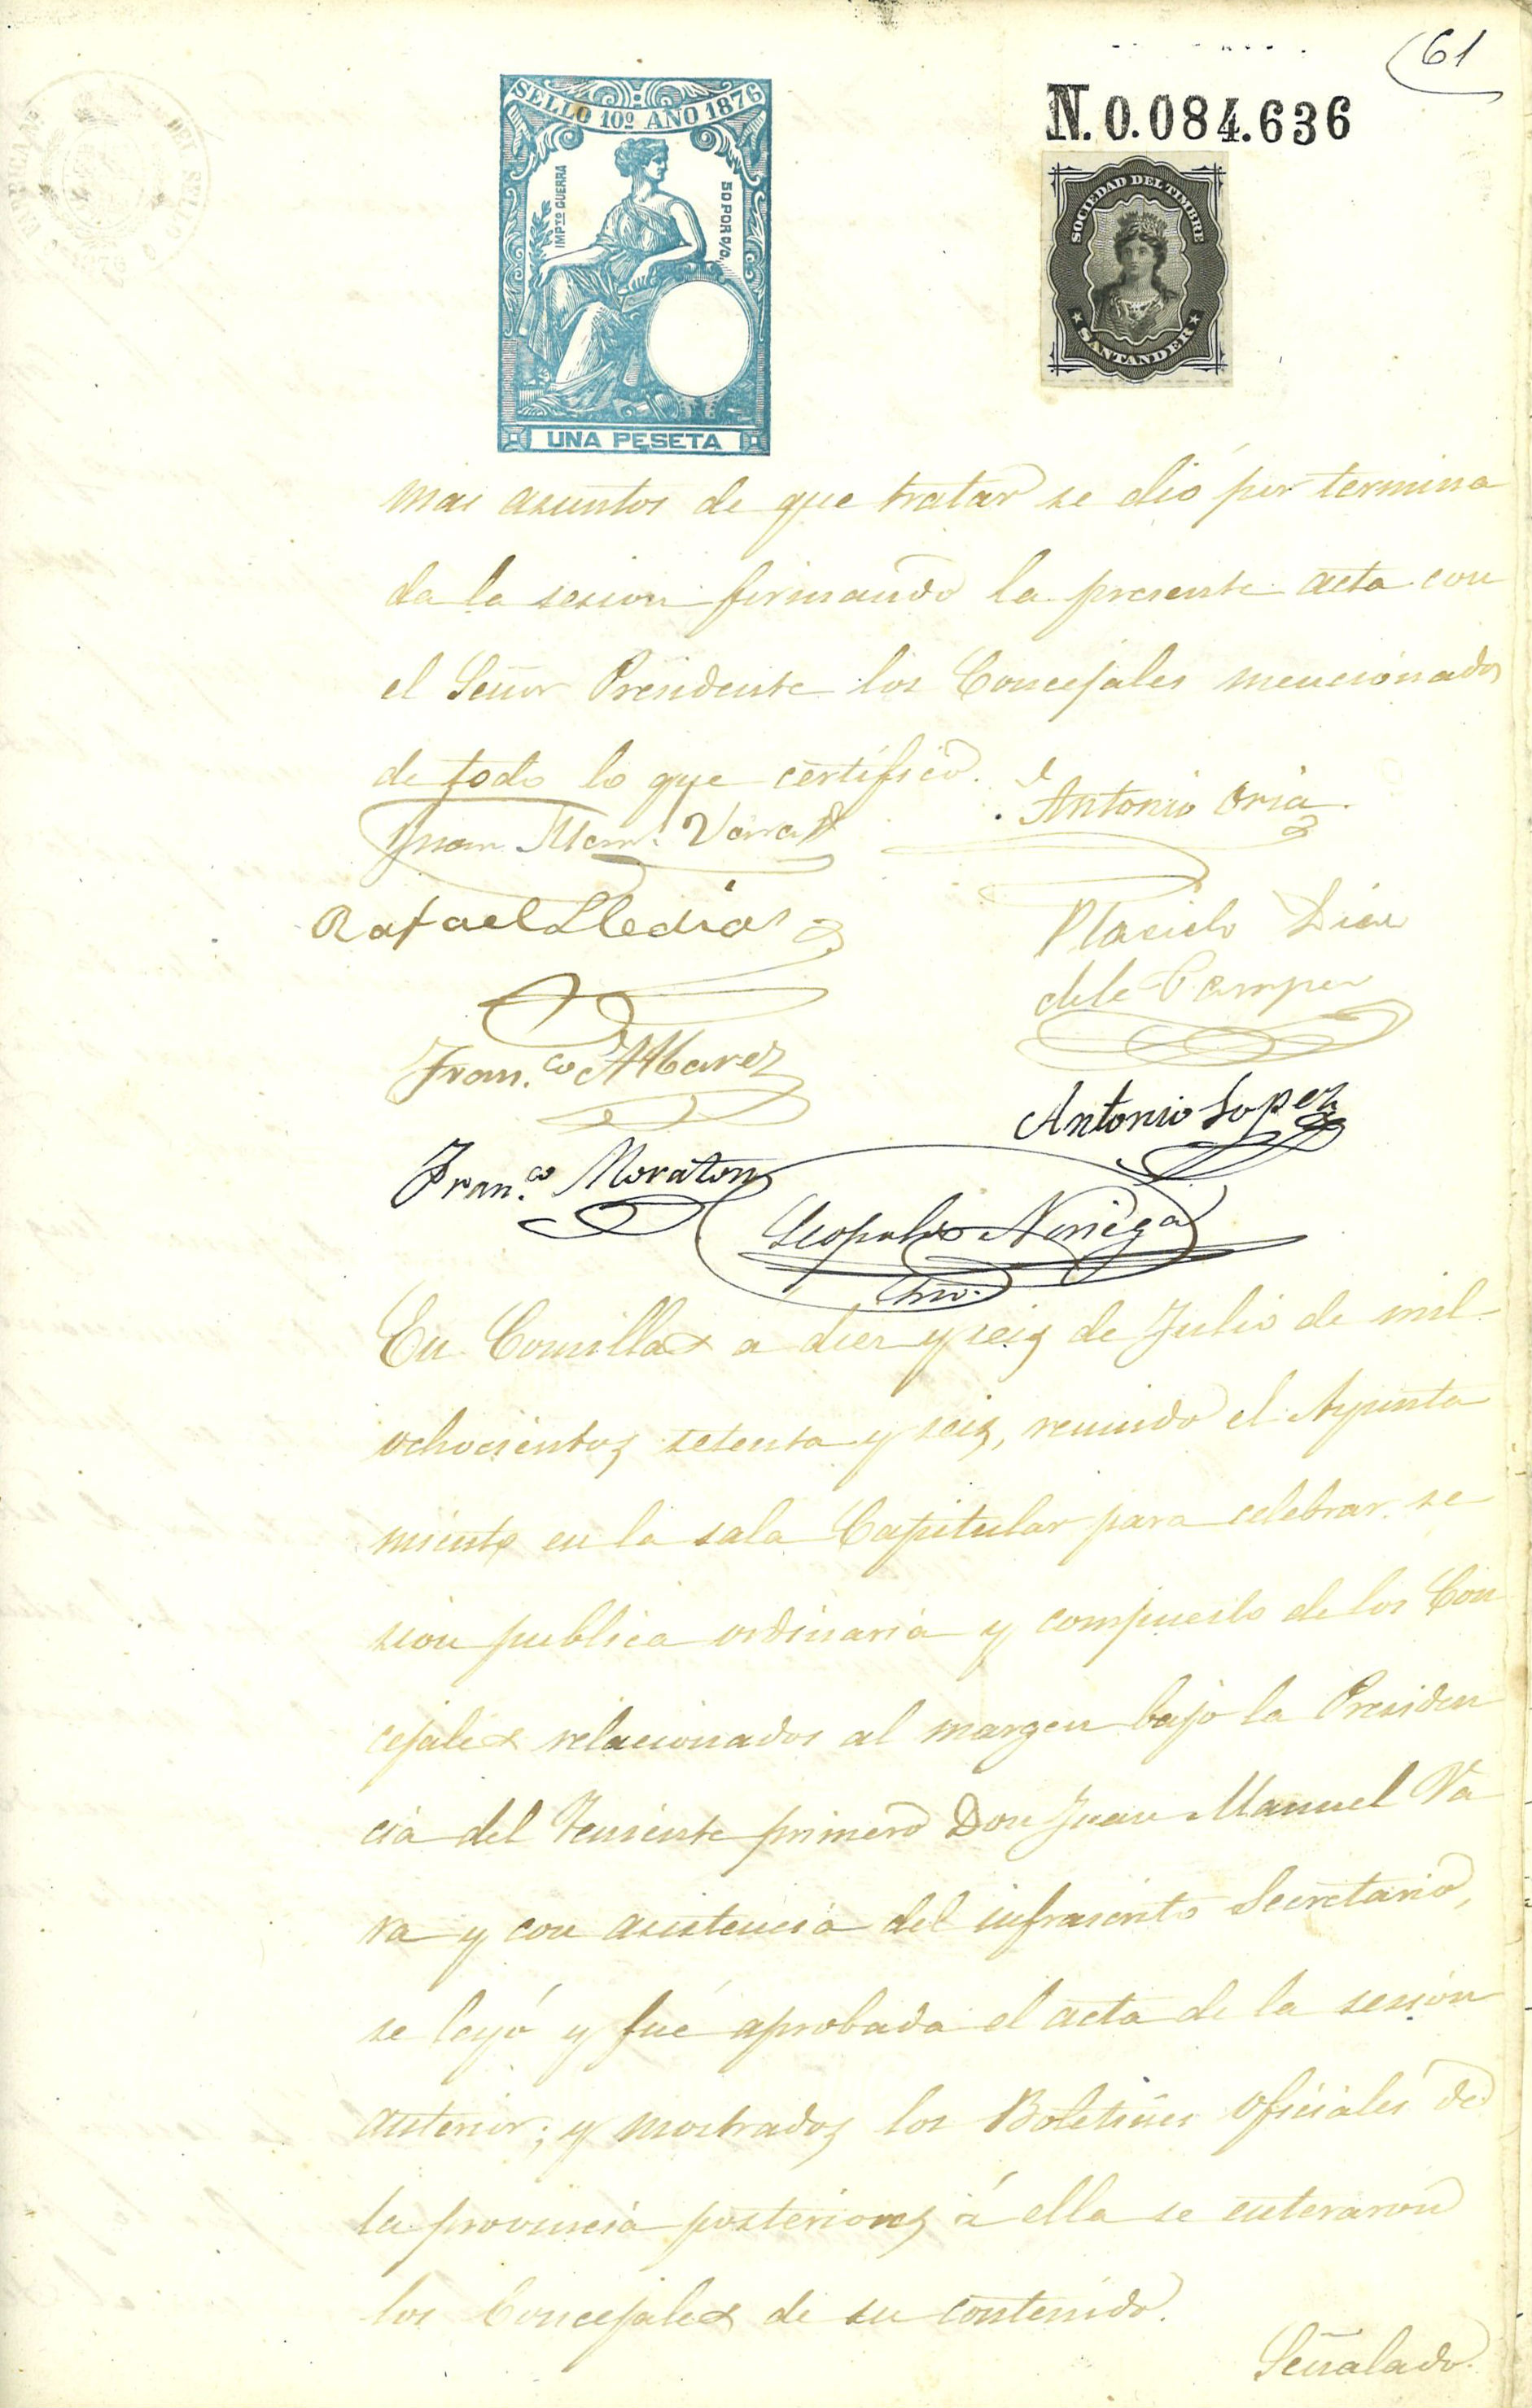 61
N. 0.084.636
SELLO 10º AÑO 1876
IMPTO GUERRA
50 POR 0/0.
UNA PESETA
SOCIEDAD DEL TIMBRE
SANTANDER
mas asuntos de que tratar se dió por termina
da la sesion firmando la presente acta con
el Señor Presidente los Concejales mencionados
de todo lo que certifico.
Juan Man.l Vara
Antonio Oria
Rafael Lledias
Placido Diaz
de la Campa
Fran.co Alvarez
Antonio Lopez
Fran.co Moraton
Leopoldo Noriega
Srio.
En Comillas a diez y seis de Julio de mil
ochocientos setenta y seis, reunido el Ayunta
miento en la sala Capitular para celebrar se
sion publica ordinaria y compuesto de los Con
cejales relacionados al margen bajo la Presiden
cia del Teniente primero Don Juan Manuel Va
ra y con asistencia del infrascrito Secretario,
se leyó y fué aprobada el acta de la sesion
anterior; y mostrados los Boletines oficiales de
la provincia posteriores á ella se enteraron
los Concejales de su contenido.
Señalado